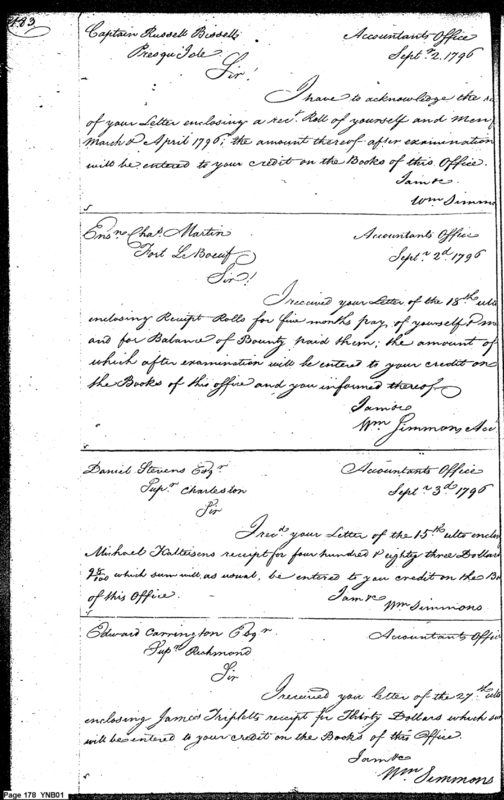 183
Captain Russell Bissell Accountants Office
Presqu Isle Septr. 2. 1796
Sir!
I have to acknowledge the
of your Letter enclosing a rect. Roll of yourself and Men,
March & April 1796; the amount thereof after examination
will be entered to your credit on the Books of this Office.
I am &c
Wm Simmo
Ensn. Chas. Martin Accountants Office
Fort Le Boeuf Septr. 2d. 1796
Sir!
I received your Letter of the 18th ulto
enclosing Receipt Rolls for five months pay, of yourself & m
and for Balance of Bounty paid them; the amount of
which after examination will be entered to your credit on
the Books of this office and you informed thereof
I am &c
Wm Simmons Acc
Daniel Stevens Esqr. Accountants Office
Supr. Charleston Septr. 3d 1796
Sir
I recd. your Letter of the 15th ulto enclos
Michael Kaltisens receipt for four hundred & eighty three Dollars
/100 which sum will, as usual, be entered to you credit on the B
of this Office. I am &c
Wm Simmons
Edward Carrington Esqr. Accountants Offic
Supr. Richmond
Sir
I received you letter of the 27th ulto
enclosing James Tripletts receipt for Thirty Dollars which su
will be entered to your credit on the Books of this Office.
I am &c
Wm Simmons
Page 178 YNB01